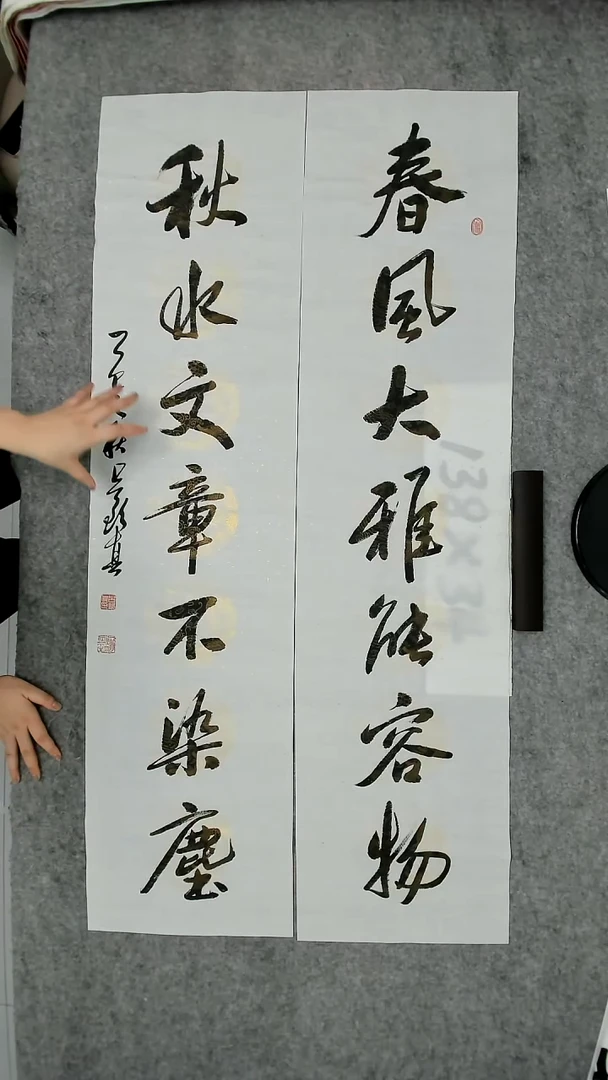 春風大雅能容物
秋水文章不染塵
138×34